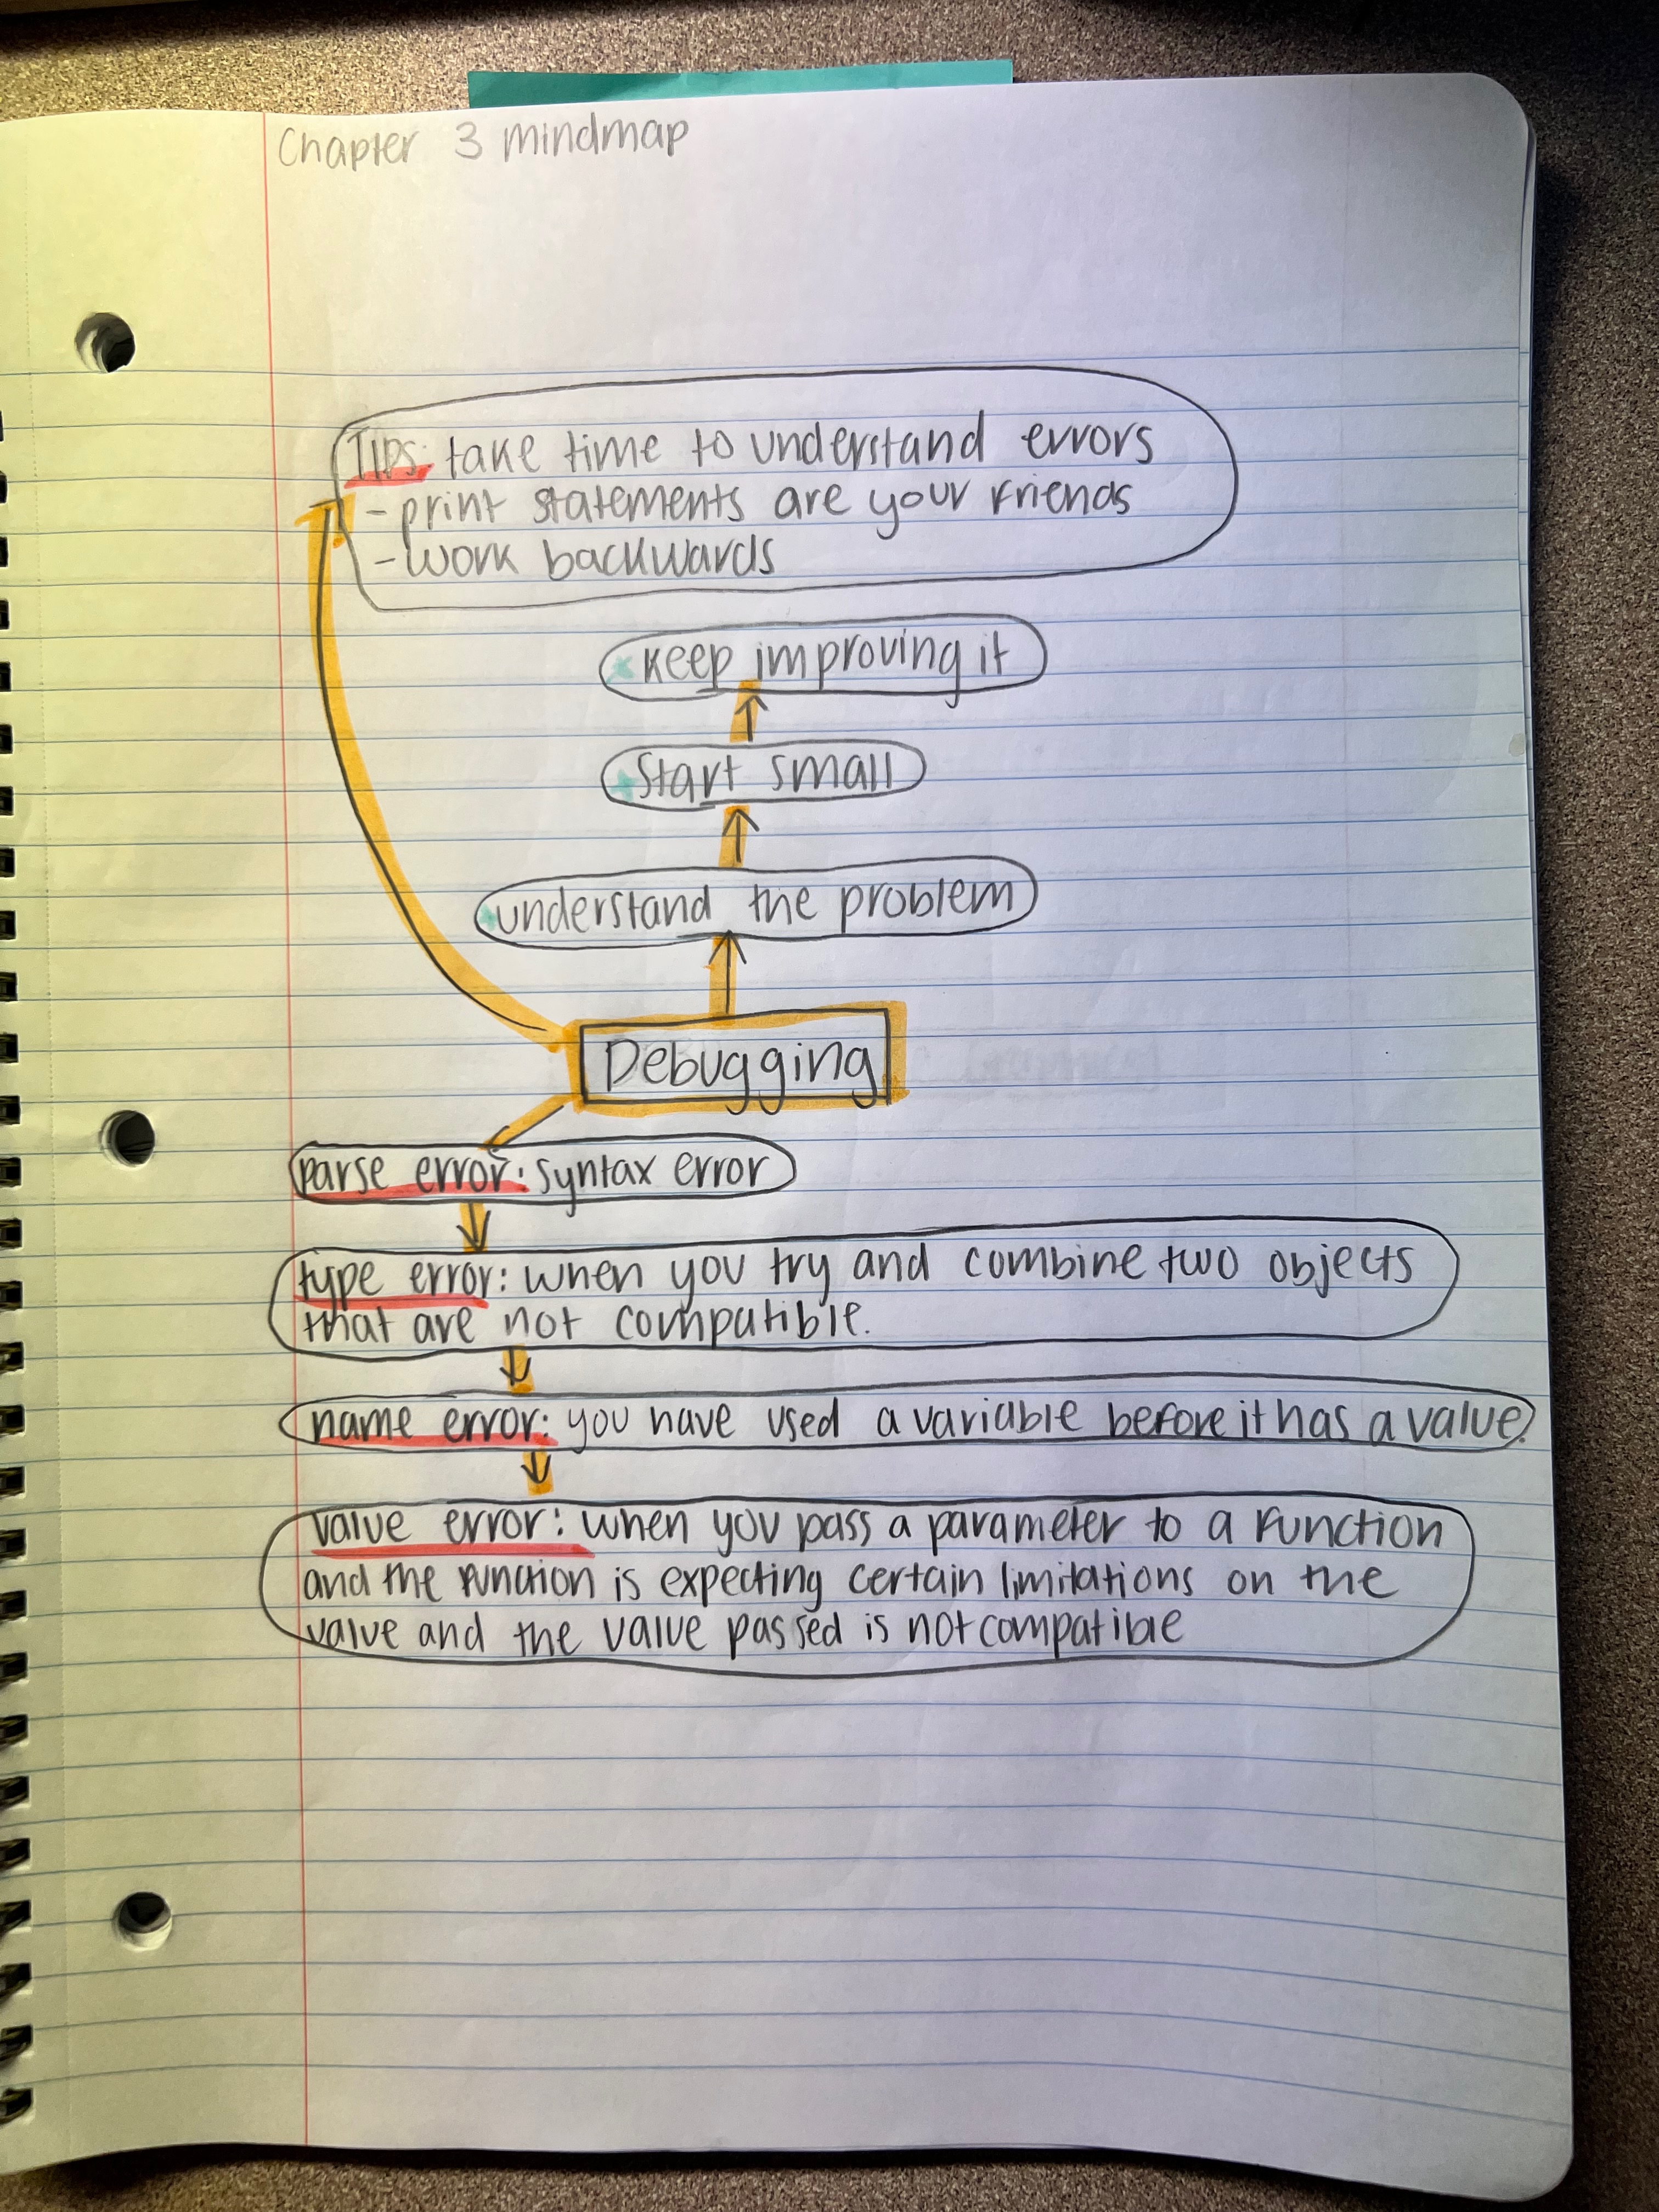 Chapter 3 mindmap
TIPS: take time to understand errors
- print statements are your friends
- work backwards
keep improving it
Start small
understand the problem
Debugging
parse error: syntax error
type error: when you try and combine two objects
that are not compatible.
name error: you have used a variable before it has a value.
value error: when you pass a parameter to a function
and the function is expecting certain limitations on the
value and the value passed is not compatible